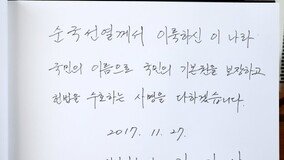 순국선열께서 이룩하신 이 나라
국민의 이름으로 국민의 기본권을 보장하고
헌법을 수호하는 사명을 다하겠습니다.
2017. 11. 27.